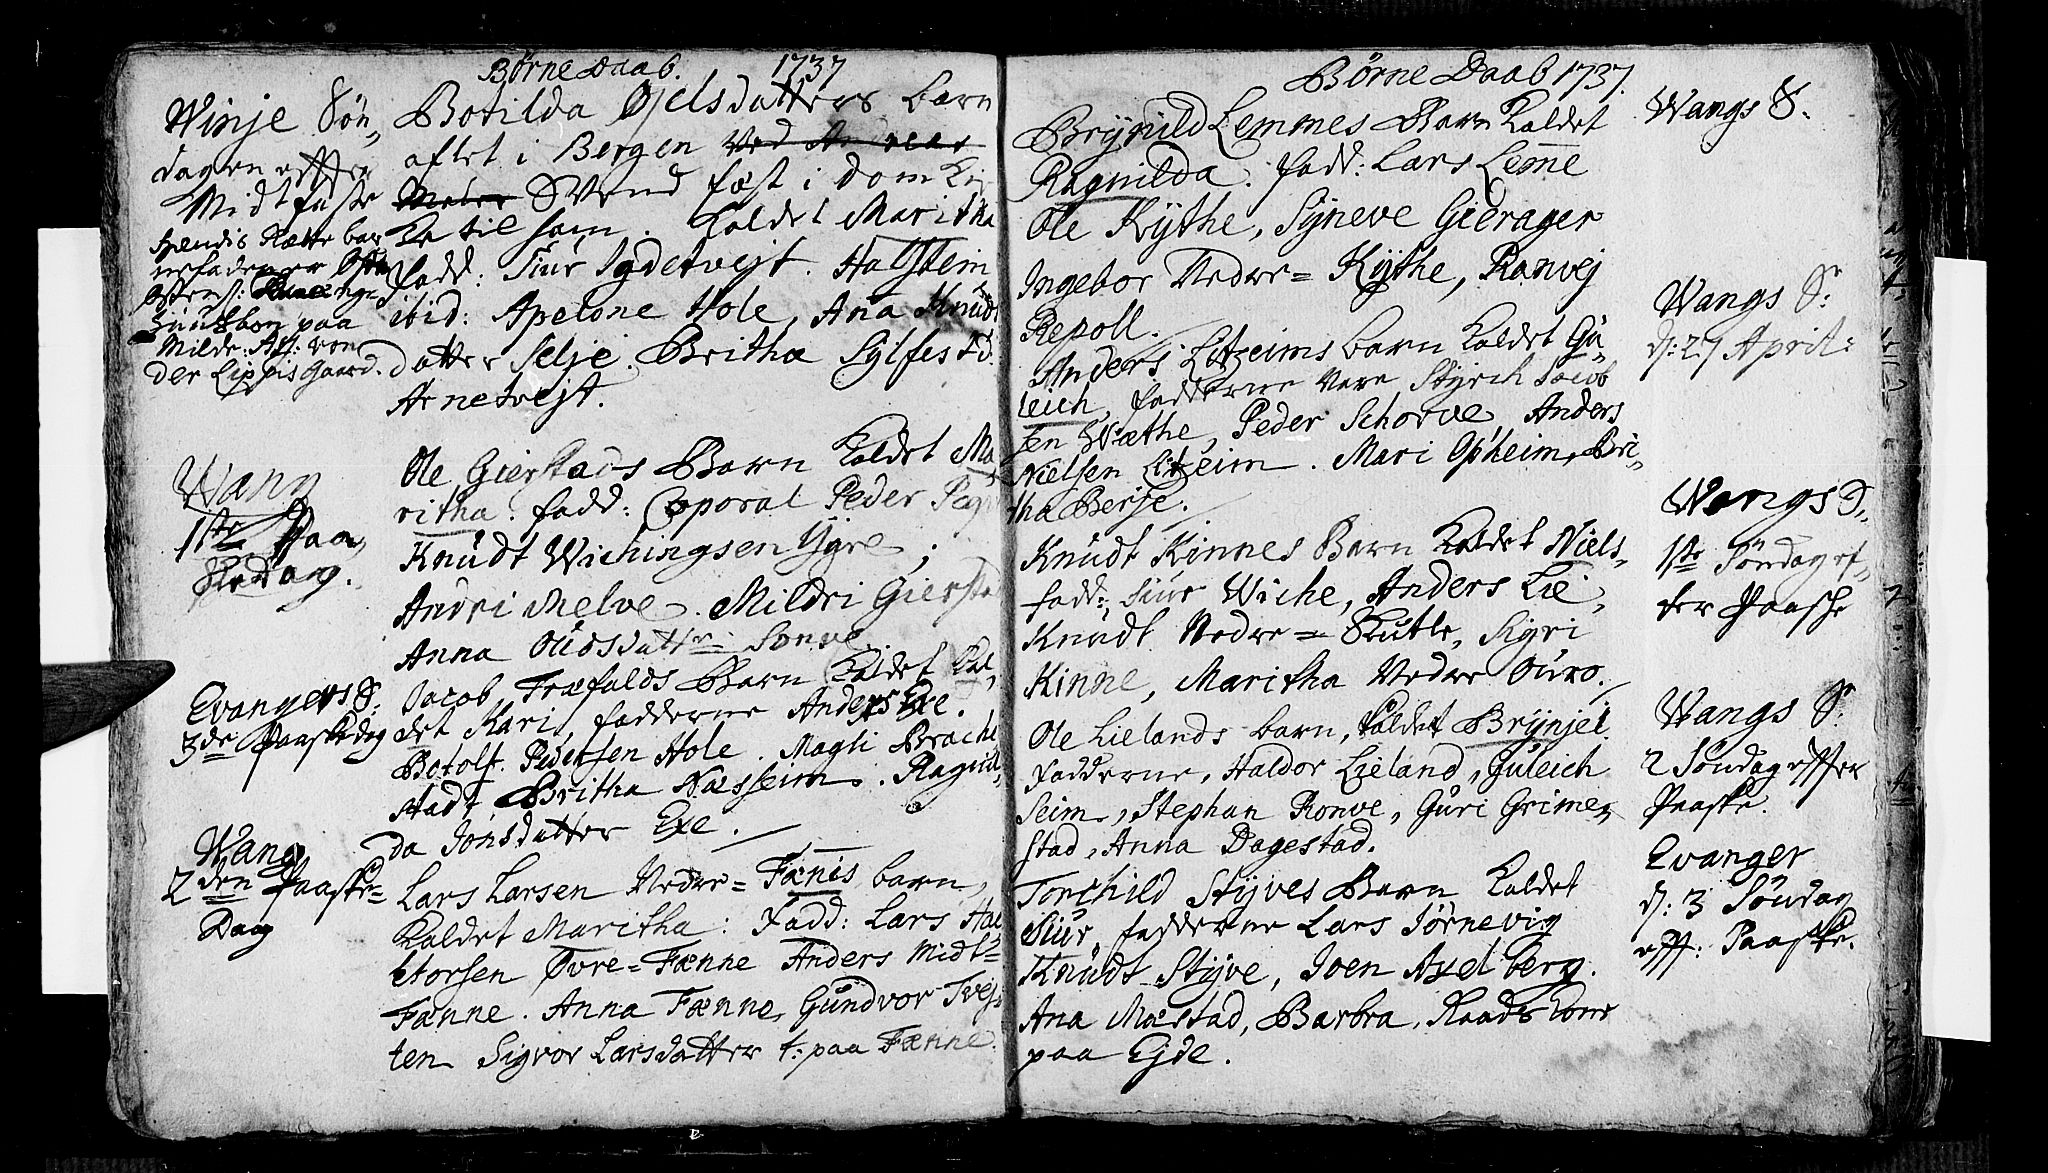 Børne Daab. 1737
Winje Søn,
dagen effter
Midtfaste
hendis Rætte bar
nefader er
paa
Milde. von
der Lippis Gaard.
Botilda Ejelsdatters barn
aflet i Bergen Ved Andreas
Svend fæst i Dom Kir
ke til ham. Kaldet Maritha
fadd: Siur Sydetvejt. Halstein
ibid: Apelone Hole, Ana Knudt
datter Selje. Britha Sylfest d:
Arnetvejt.
Wang
1ste Paa,
skedag.
Ole Gierstads Barn Kaldet Ma
ritha. fadd: Coporal Peder
Knudt Wichingsen Ygre,
Andri Melve. Mildri Giersta
Anna Olidsdatter Sonve
Evangers S:
3de Paaskedag
Jacob Træfalds Barn Kaldet Kal,
det Kari, fadderne Anders Exe.
Botolf Pedersen Hole. Magli Brache
stad, Britha Næsseim. Ragnil,
da Jonsdatter Exe.
Wang
2den Paaske=
Dag
Lars Larsen Nedre=Fænis barn,
Kaldet Maritha: Fadd: Lars Hal
storsen Øvre=Fænne Anders Midt=
Fænne. Anna Fænne, Gundvor Tvej
ten Sigvor Larsdatter t: paa Fænne.
Børne Daab 1737.
Brynild Lemmes Barn Kaldet
Ragnilda. fadd: Lars Leme
Ole Kythe, Syneve Gierager
Ingebor Nedre=Kythe, Ranvej
Repoll.
Wangs S:
Anders Litzeims barn Kaldet Gu,
leich, fadderne vare Styrch Jacob
sen Wæthe, Peder Schorve, Anders
Nielsen Litzeim. Mari Opheim, Bri,
tha Berje.
Wangs S:
d: 27 April:
Knudt Kinnes Barn Kaldet Niels.
fadd: Siur Wiche, Anders Lie,
Knudt Nedre=Skutle, Sigri
Kinne, Maritha Nedre Ouro.
Wangs S.
1ste Søndag ef,
ter Paasche
Ole Lielands barn, Kaldet Brynjel
Fadderne, Haldor Lieland, Guleich
Seim, Stephan Ronve, Guri Grime,
stad, Anna Dagestad.
Wangs S:
2 Søndag effter
Paaske.
Torchild Styves Barn Kaldet
Siur, fadderne Lars Jørnevig
Knudt Styve, Joen Axelberg.
Ana Mæstad, Barbra, Raads Kone
paa Ejde.
Evanger
d: 3 Søndag
eff: Paaske.